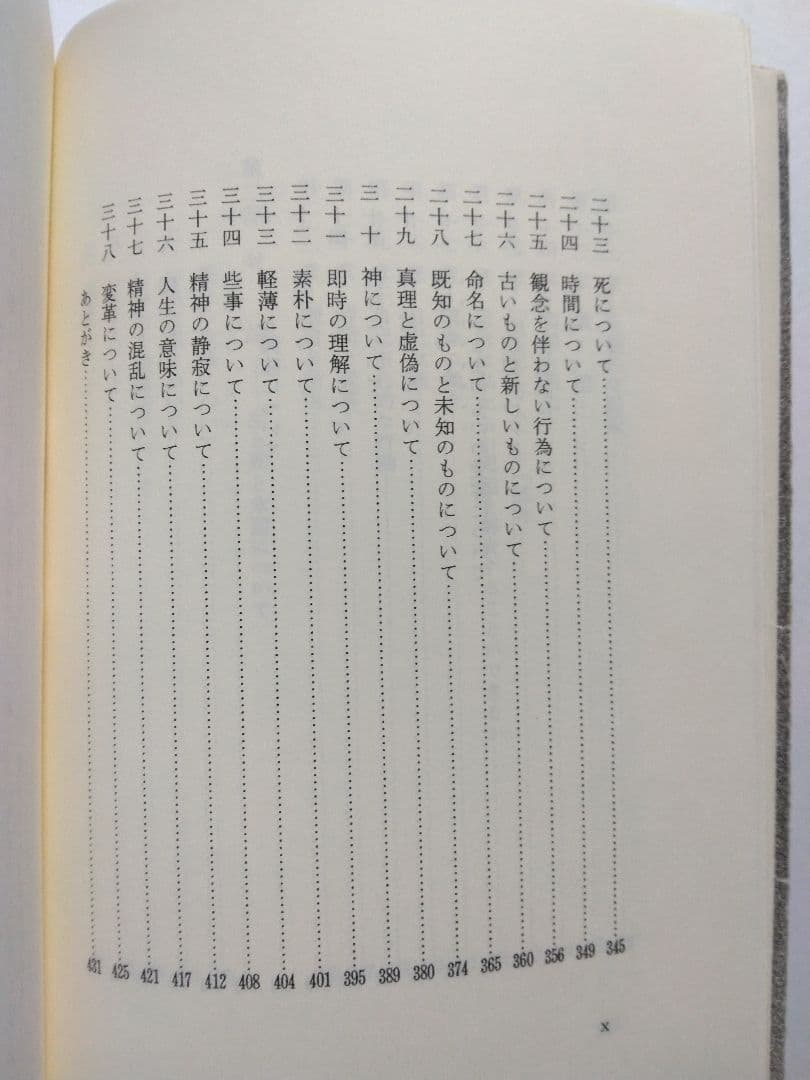 二十三 死について……………345
二十四 時間について……………349
二十五 観念を伴わない行為について……………356
二十六 古いものと新しいものについて……………360
二十七 命名について……………365
二十八 既知のものと未知のものについて……………374
二十九 真理と虚偽について……………380
三 十 神について……………389
三十一 即時の理解について……………395
三十二 素朴について……………401
三十三 軽薄について……………404
三十四 些事について……………408
三十五 精神の静寂について……………412
三十六 人生の意味について……………417
三十七 精神の混乱について……………421
三十八 変革について……………425
あとがき……………431
x